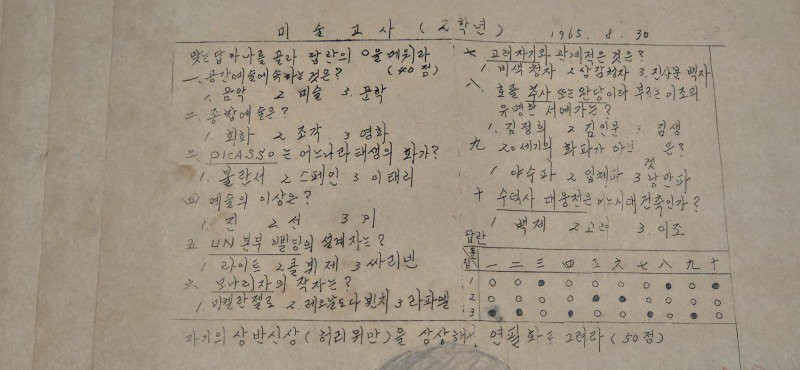 미술고사 (2학년) 1965. 8. 30
맞는답 하나를 골라 답란의 O을 메워라
(40점)
一. 공간예술에 속하는것은?
1. 음악 2 미술 3. 문학
二. 종합예술은?
1. 회화 2 조각 3 영화
三 PICASSO는 어느나라 태생의 화가?
1. 불란서 2 스페인 3 이태리
四 예술의 이상은?
1. 진 2 선 3 미
五 UN 본부 삘딩의 설계자는?
1 라이트 2 콜뷔제 3 싸리넨
六 모나리자의 작자는?
1. 미켈란젤로 2 레오날도다빈치 3 라파엘
七 고려자기와 관계적은 것은?
1 비색청자 2 상감청자 3. 진사문백자
八 호를 추사 또는 완당이라 부르는 이조의
유명한 서예가는?
1. 김정희 2 김인문 3. 김생
九 20세기의 화파가 아닌 것은?
1 야수파 2 입체파 3 낭만파
十 수덕사 대웅전은 어느시대 건축인가?
1 백제 2 고려 3. 이조
답란
一 二 三 四 五 六 七 八 九 十
1 ○ ○ ● ○ ○ ○ ○ ● ○ ●
2 ○ ○ ○ ○ ● ● ○ ○ ○ ○
3 ● ● ○ ● ○ ○ ● ○ ● ●
자기의 상반신상 (허리위만)을 상상해서 연필화로 그려라 (50점)